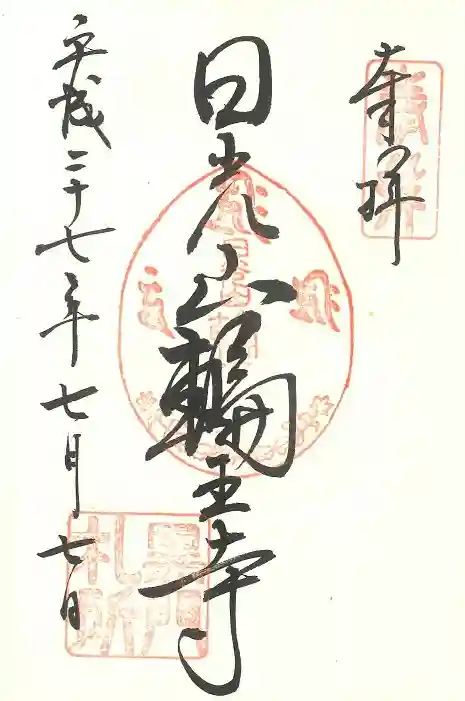 奉拝
日光山輪王寺
平成二十七年七月七日